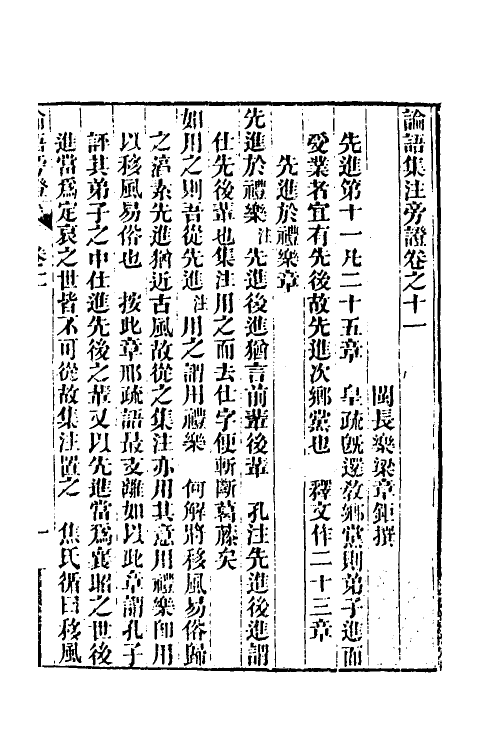 論語集注旁證卷之十一
閩長樂梁章鉅撰
先進第十一凡二十五章　皇疏旣還敎鄉黨則弟子進而
受業者宜有先後故先進次鄉黨也　釋文作二十三章
先進於禮樂章
先進於禮樂注先進後進猶言前輩後輩　孔注先進後進謂
仕先後輩也集注用之而去仕字便斬斷葛藤矣
如用之則吾從先進注用之謂用禮樂　何解將移風易俗歸
之淳素先進猶近古風故從之集注亦用其意用禮樂卽用
以移風易俗也　按此章邢疏語最支離如以此章謂孔子
評其弟子之中仕進先後之輩又以先進當爲襄昭之世後
進當爲定哀之世皆不可從故集注置之　焦氏循曰移風
論語旁證　卷十一　一